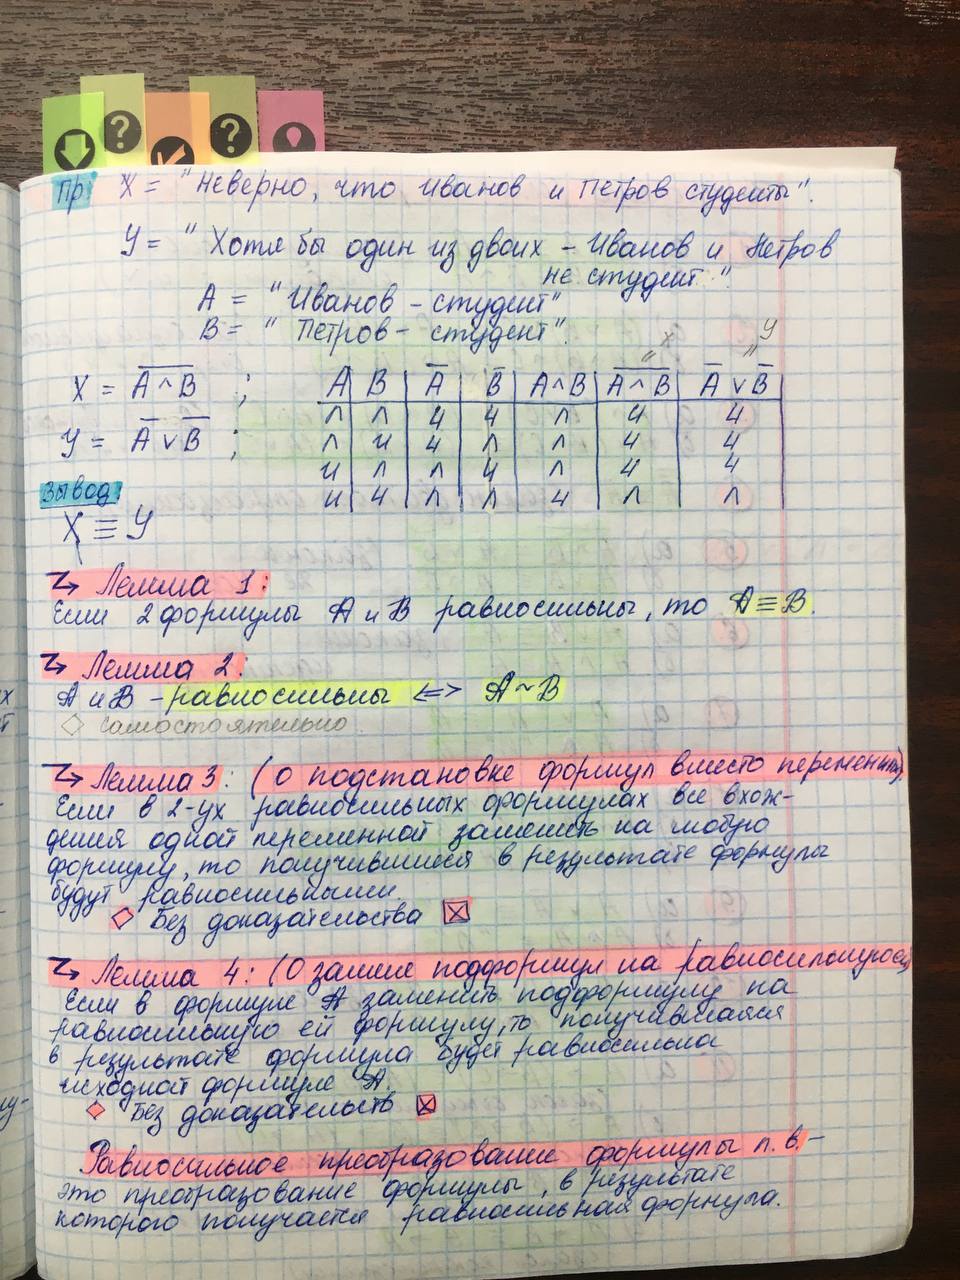 Пр: X = "Неверно, что Иванов и Петров студенты".
У = " Хотя бы один из двоих - Иванов и Петров
не студент."
А = "Иванов - студент"
В = " Петров - студент".
X У
X = \overline{A ^ B} ; A B \overline{A} \overline{B} A^B \overline{A ^ B} \overline{A} v \overline{B}
У = \overline{A} v \overline{B} ; Л Л И И Л И И
Л И И Л Л И И
И Л Л И Л И И
И И Л Л И Л Л
Вывод:
X ≡ У
Лемма 1:
Если 2 формулы A и B равносильны, то A ≡ B.
Лемма 2:
A и B - равносильны <=> A ~ B
◇ самостоятельно.
Лемма 3: (о подстановке формул вместо переменных)
Если в 2-ух равносильных формулах все вхож-
дения одной переменной заменить на любую
формулу, то получившиеся в результате формулы
будут равносильными
◇ Без доказательства ☒
Лемма 4: (О замене подформул на равносильную ей)
Если в формуле A заменить подформулу на
равносильную ей формулу, то получившаяся
в результате формула будет равносильна
исходной формуле A.
◇ Без доказательств ☒
Равносильное преобразование формулы л.в. -
это преобразование формулы, в результате
которого получается равносильная формула.